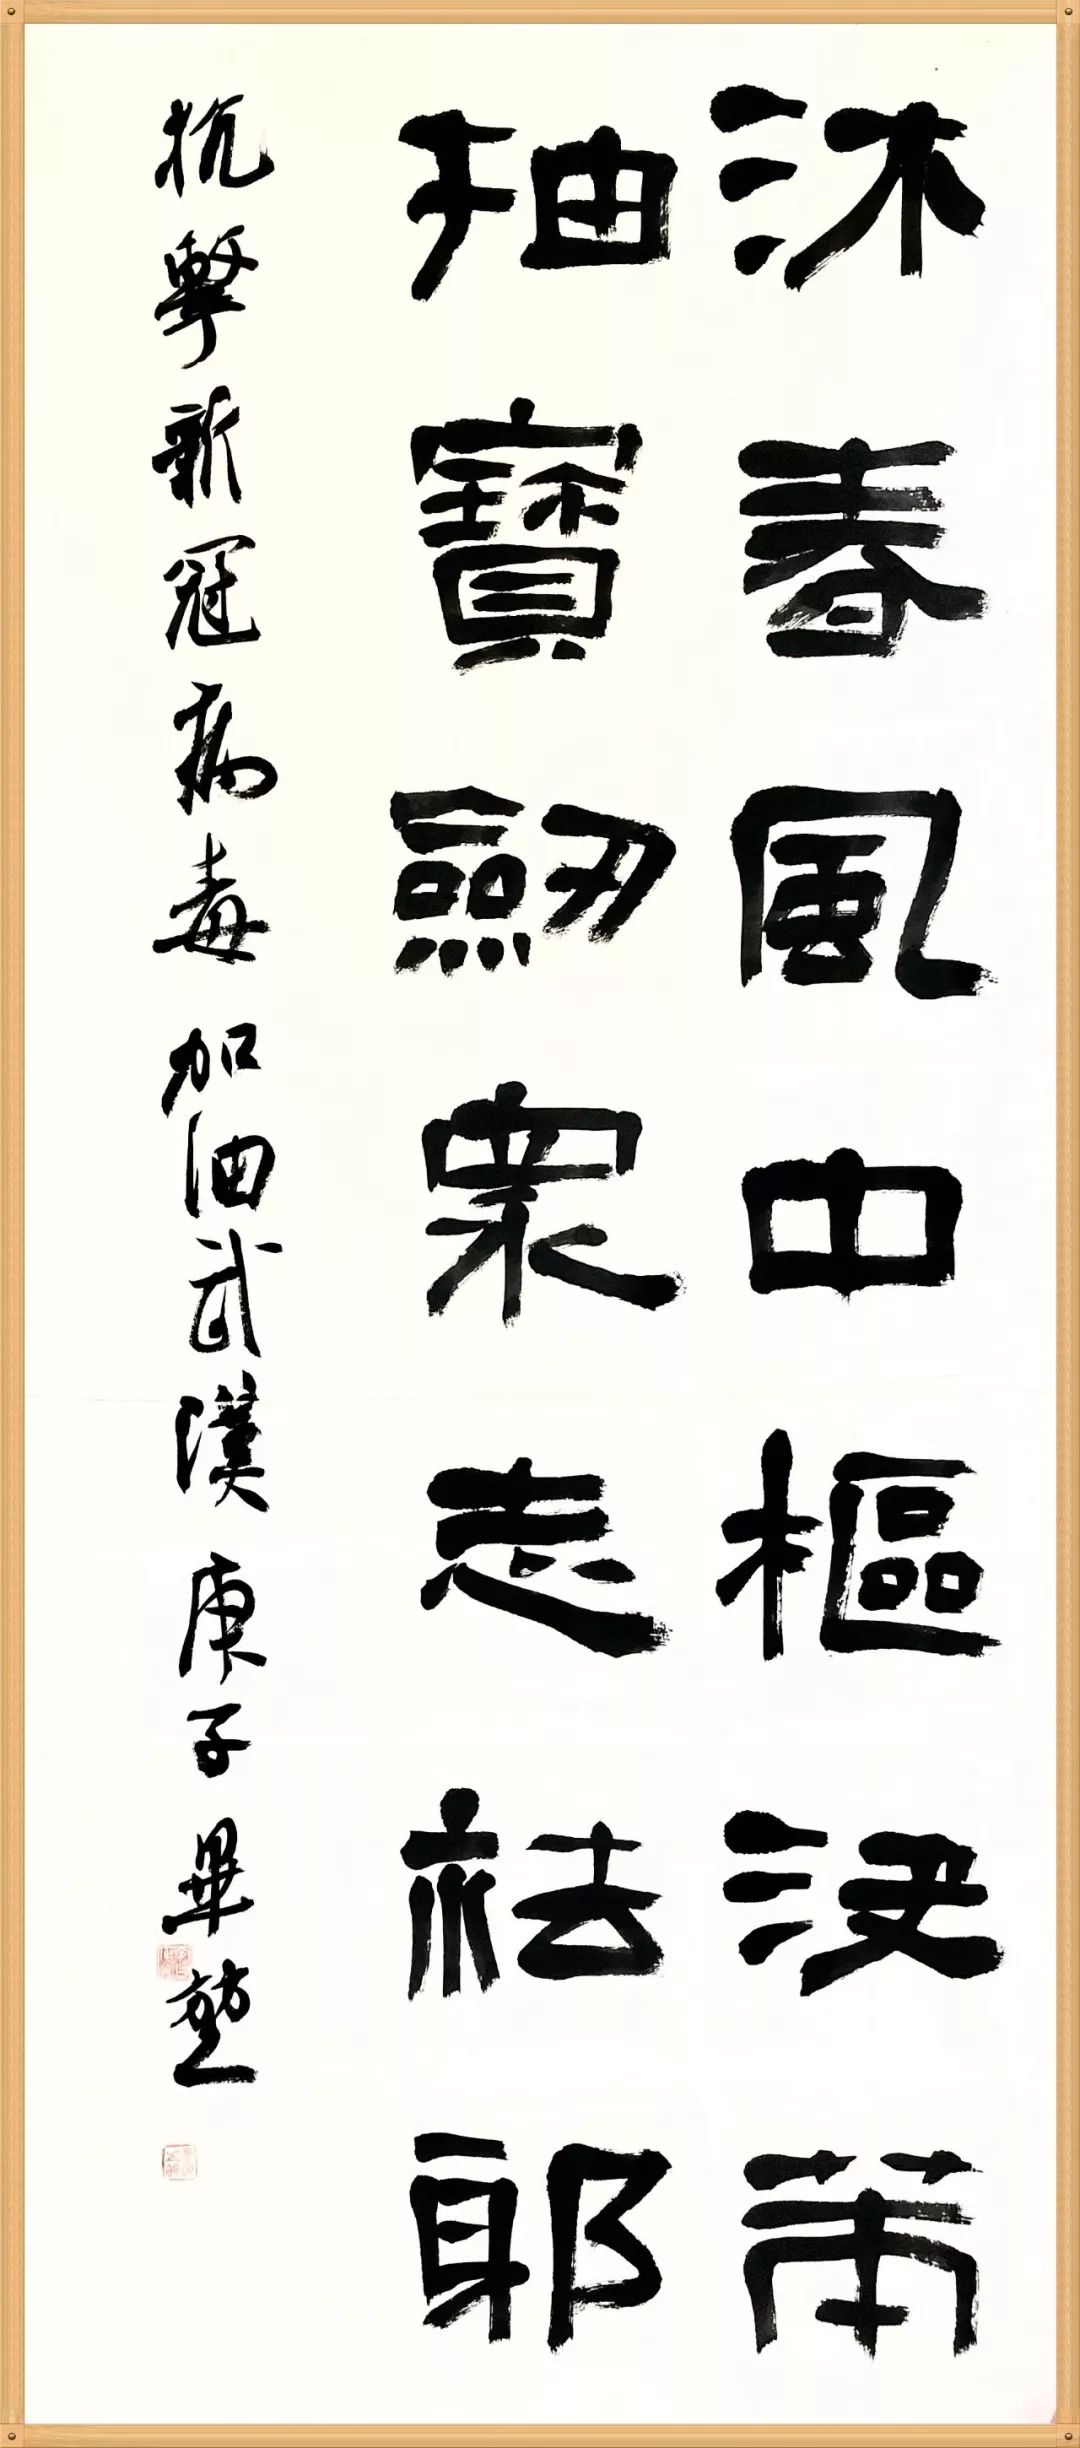 沐春風中樞決策
抽寶劍衆志祛邪
抗擊新冠病毒加油武漢庚子畢堃